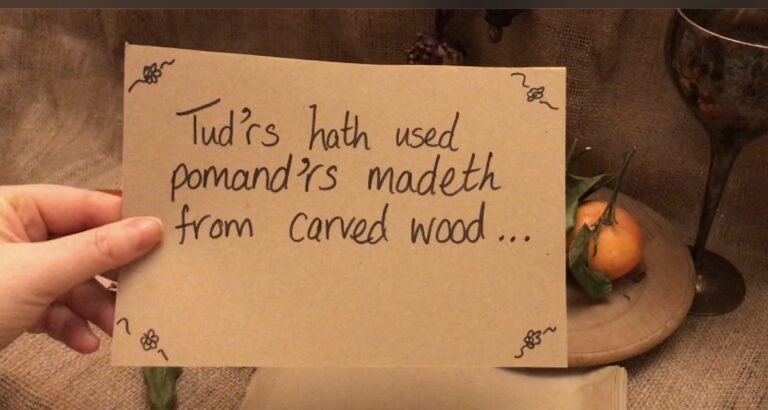 Tud'rs hath used
pomand'rs madeth
from carved wood...